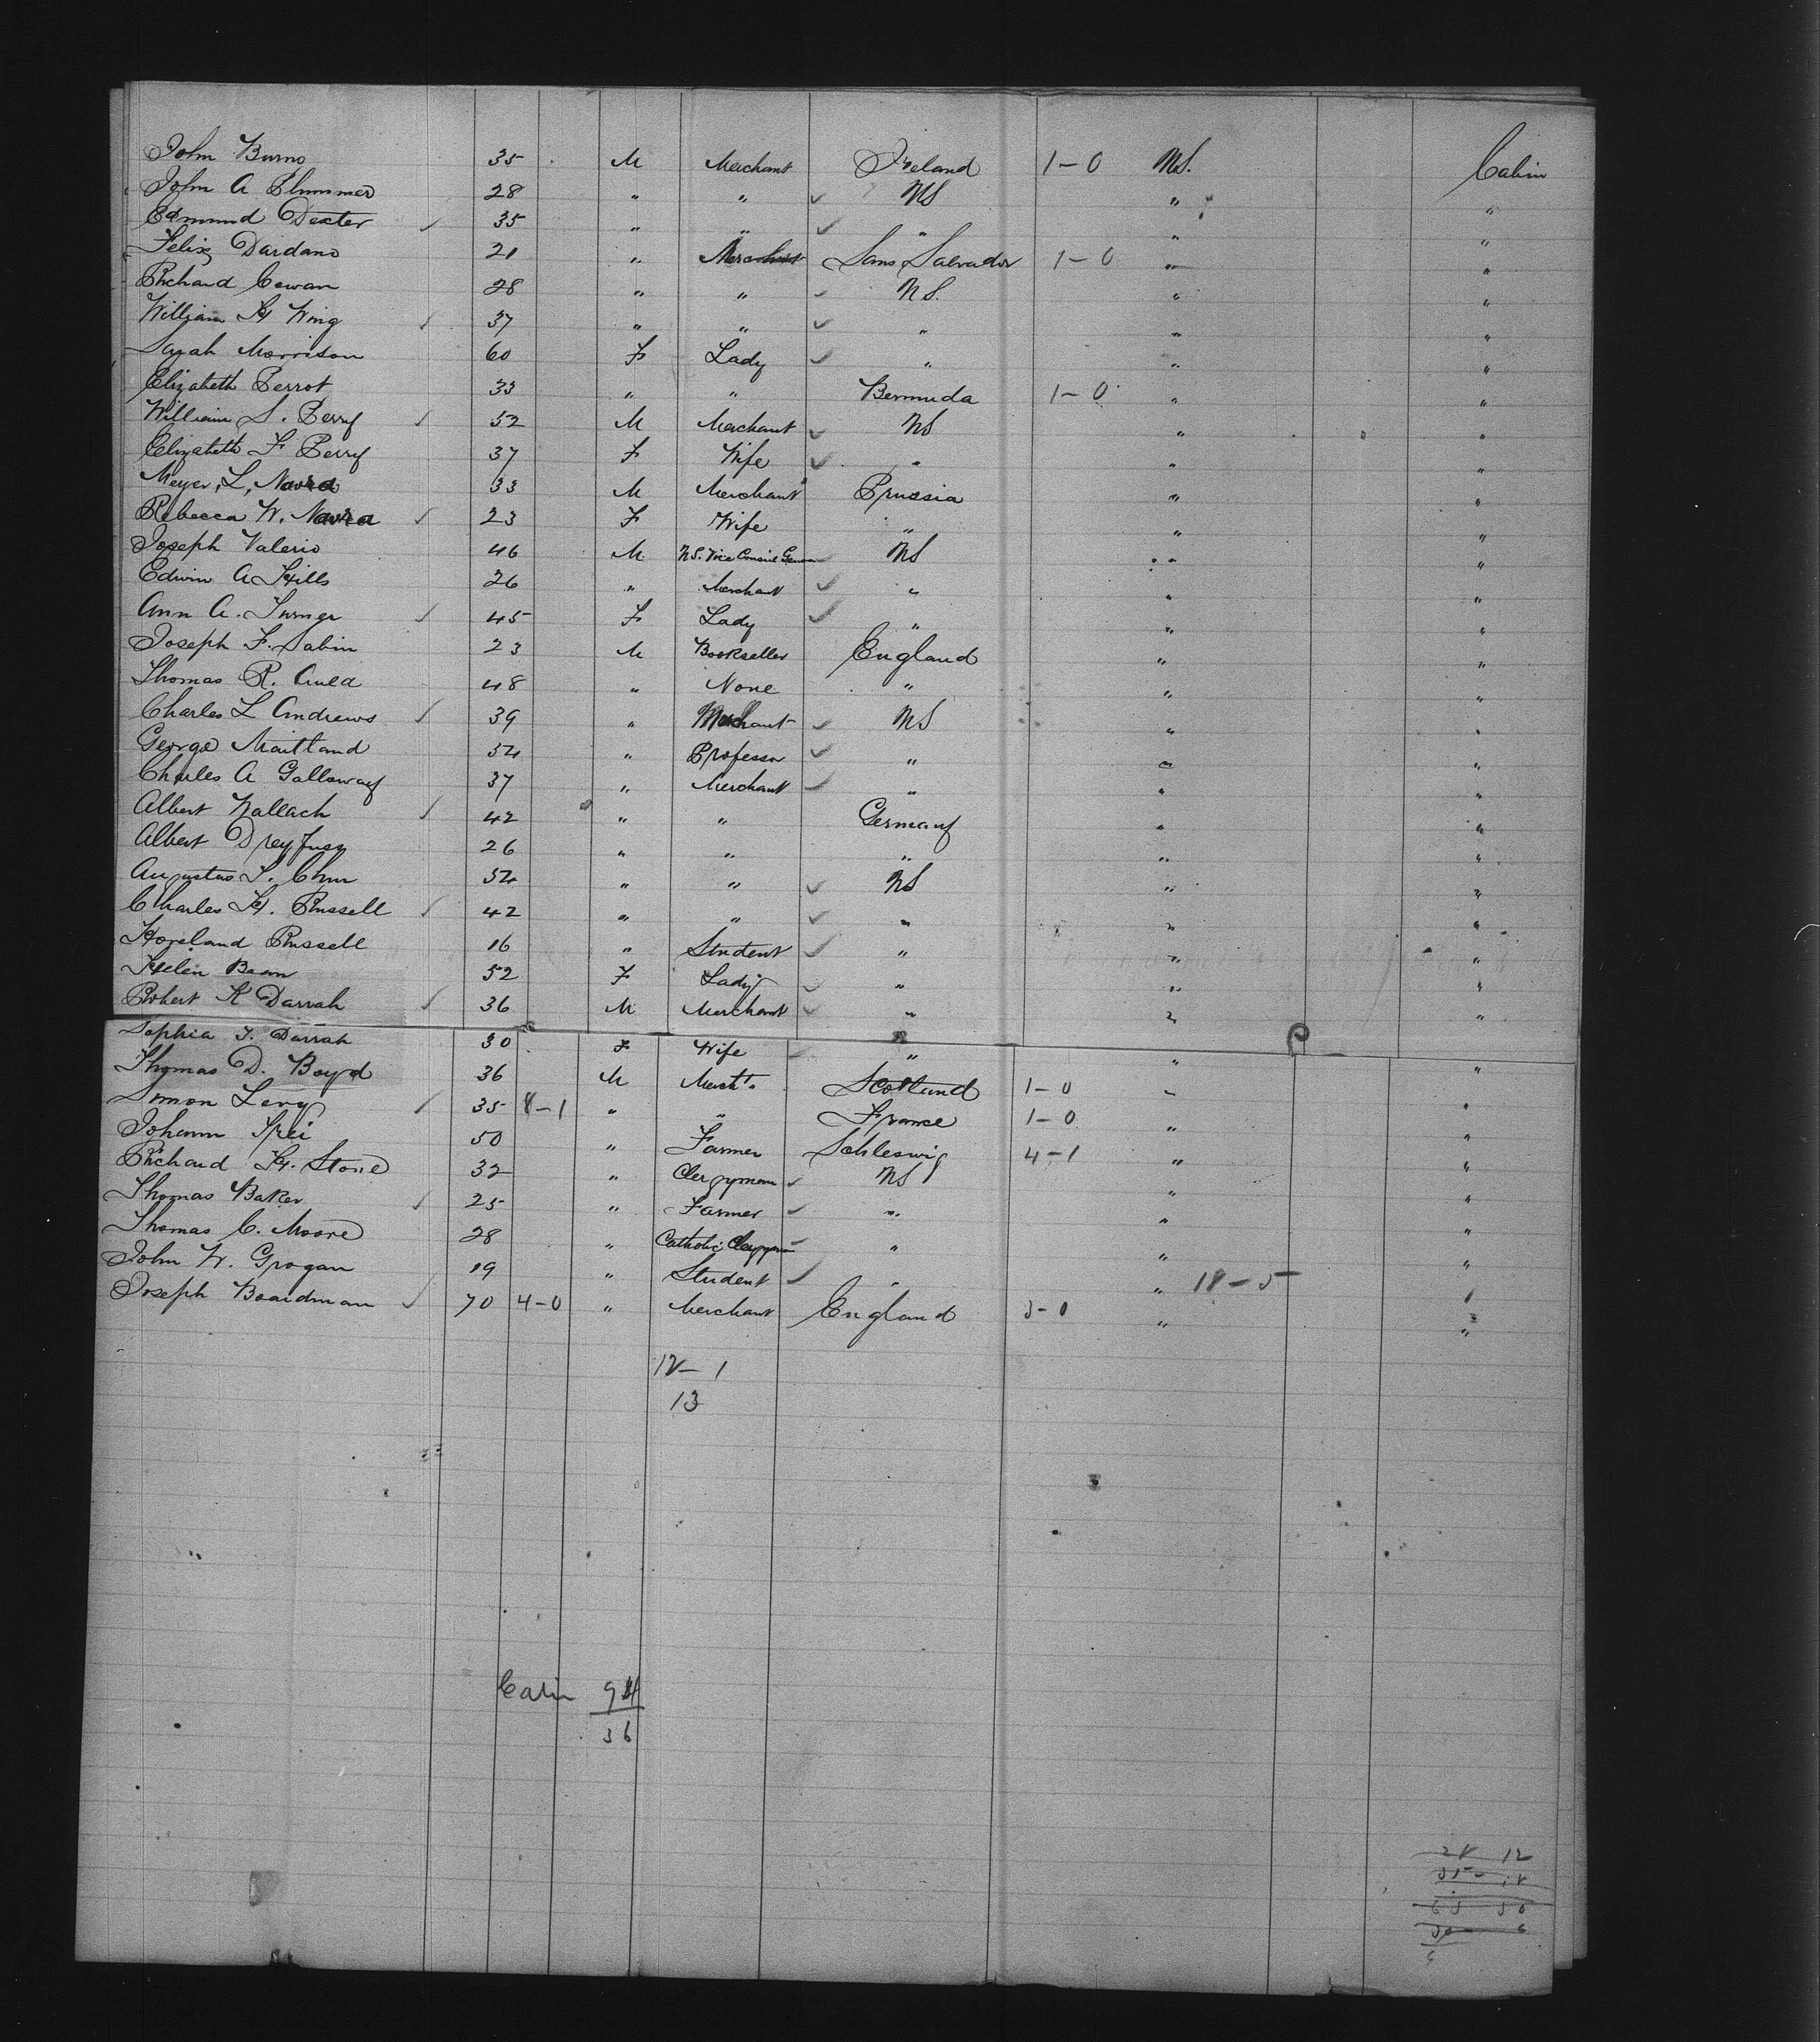 John Burns 35 M Merchant Ireland 1-0 US. Cabin
John A Plummer 28 " " US " "
Edmund Dexter 35 " " " " "
Felix Dardano 21 " Merchant San Salvador 1-0 " "
Richard Cowan 28 " " US. " "
William H Wing 37 " " " " "
Sarah Morrison 60 F Lady " " "
Elizabeth Perrot 33 " " Bermuda 1-0 " "
William S. Perry 52 M Merchant US " "
Elizabeth F Perry 37 F Wife " " "
Meyer, L, Navra 33 M Merchant Prussia " "
Rebecca W. Navra 23 F Wife " " "
Joseph Valerio 46 M U.S. Vice Consul Genoa US " "
Edwin A Hills 26 " Merchant " " "
Ann A. Turner 45 F Lady " " "
Joseph F. Sabin 23 M Bookseller England " "
Thomas R. Auld 48 " None " " "
Charles L Andrews 39 " Merchant US " "
George Maitland 54 " Professor " " "
Charles A Galloway 37 " Merchant " " "
Albert Wallach 42 " " Germany " "
Albert Dreyfuss 26 " " " " "
Augustus S. 54 " " US " "
Charles H. Russell 42 " " " " "
Russell 16 " Student " " "
Helen Bean 52 F Lady " " "
Robert K Darrah 36 M Merchant " " "
Sophia T. Darrah 30 F Wife " " "
Thomas D. Boyd 36 M Mercht Scotland 1-0 " "
Simon Levy 35 8-1 " " France 1-0 " "
Johann 50 " Farmer Schleswig 4-1 " "
Richard H. Stone 32 " Clergyman US " "
Thomas Baker 25 " Farmer " " "
Thomas C. Moore 28 " Catholic Clergyman " " "
John W. Grogan 19 " Student " " 18-5 "
Joseph Boardman 70 4-0 " Merchant England 3-0 " "
12-1
13
Cabin 94
36